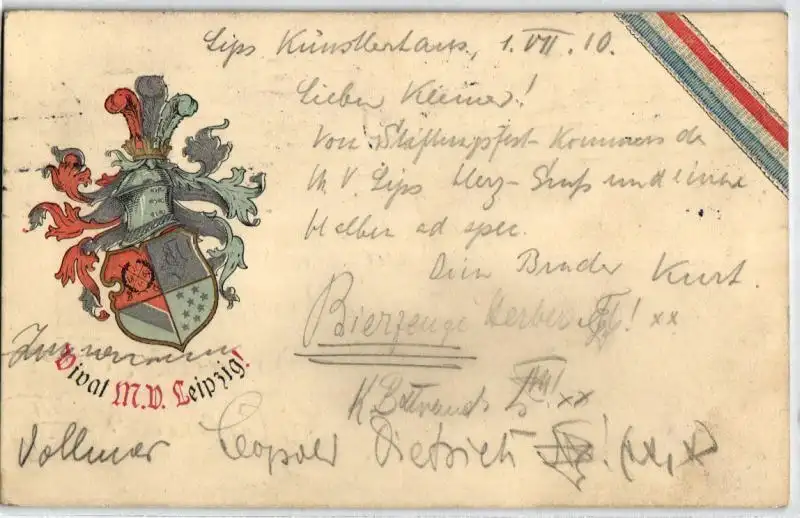 Lips Künstlerhaus, 1.VII.10.
Lieber Kleiner!
Vom Stiftungsfest-Kommers des
M.V. Lips Herz-Gruß und eine
Halben ad spec.
Dein Bruder Kurt.
Bierzeuge ! xx
Zimmermann
Vivat M.V. Leipzig!
K xx
Vollmer Leopold Dietrich ! (xx, x)